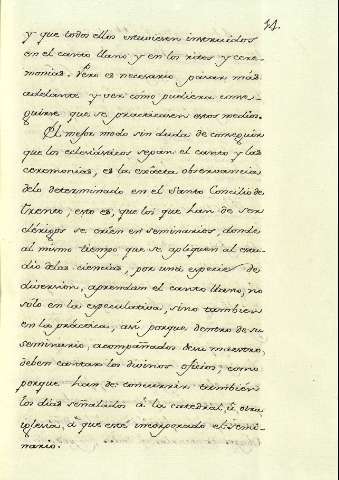 14.
y que todos ellos estuviesen instruidos
en el canto llano y en los rites y cere-
monias. Pero es necesario pasar más
adelante y ver como pudiera conse-
guirse que se practicasen estos medios.
El mejor modo sin duda de conseguir
que los eclesiásticos sepan el canto y las
ceremonias, es la exâcta observancia
delo determinado en el Santo Concilio de
Trento; esto es, que los que han de ser
clérigos se crien en seminarios, donde
al mismo tiempo que se apliquen al estu-
dio delas ciencias, por una especie de
diversion, aprendan el canto llano, no
sólo en la especulativa, sino tambien
en la práctica, así porque dentro de su
seminario, acompañados desu maestro,
deben cantar los divinos oficios; como
porque han de concurrir tambien
los dias señalados á la catedral, ú otra
iglesia, á que esté incorporado el semi-
nario.